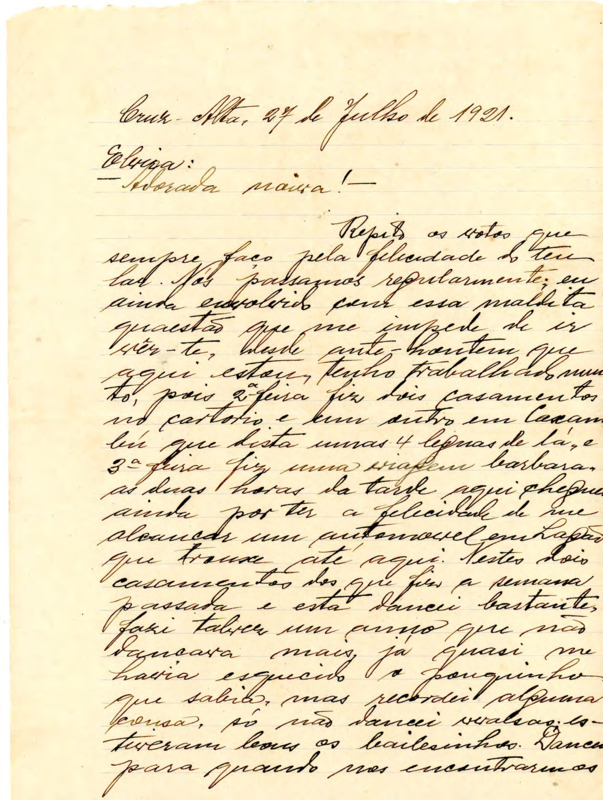 Cruz-Alta, 27 de Julho de 1921.
Elvira:
Adorada noiva!—
Repito os votos que
sempre faço pela felicidade do teu
lar. Nós passamos regularmente; eu
ainda envolvido com essa maldita
quaestão que me impede de ir
vêr-te, desde ante-hontem que
aqui estou, tenho trabalhado mui
to, pois 2ª feira fiz dois casamentos
no cartorio e um outro em Caxam
bú que dista umas 4 leguas de lá, e
3ª feira fiz uma viagem barbara,
as duas horas da tarde aqui cheguei
ainda por ter a felicidade de me
alcançar um automovel em
que trouxe até aqui. Nestes dois
casamentos dos que fiz a semana
passada e esta dancei bastante,
fazi talvez um anno que não
dancava mais, ja quasi me
havia esquecido o pouquinho
que sabia, mas recordei alguma
cousa, só não dancei valsas, es-
tiveram bons os bailesinhos. Dancei
para quando nos encontrarmos